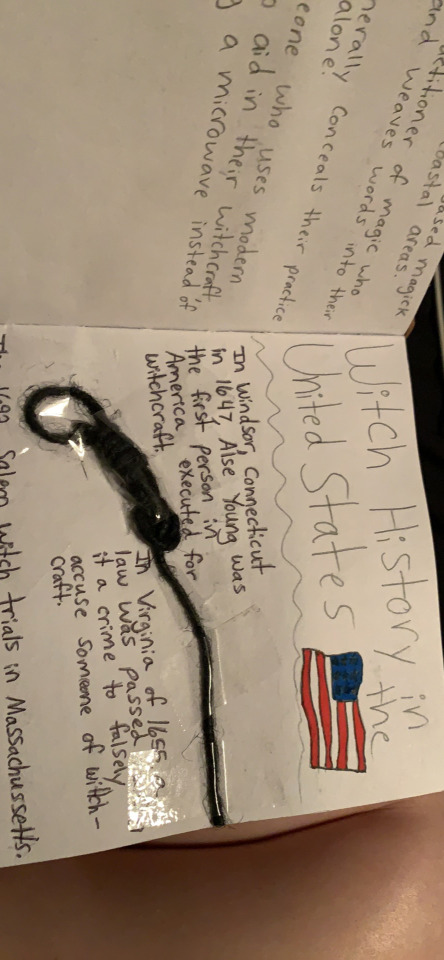 based magick
coastal areas.
and weaves of magic who
words into their
conceals their practice
alone.
who uses modern
aid in their witchcraft,
a microwave instead of
Witch History in the
United States
In Windsor, Connecticut
in 1647, Alse Young was
the first person in
America executed for
witchcraft.
In Virginia of 1655 a
law was passed
it a crime to falsely
accuse someone of witch-
craft.
1692 Salem witch trials in Massachussetts.